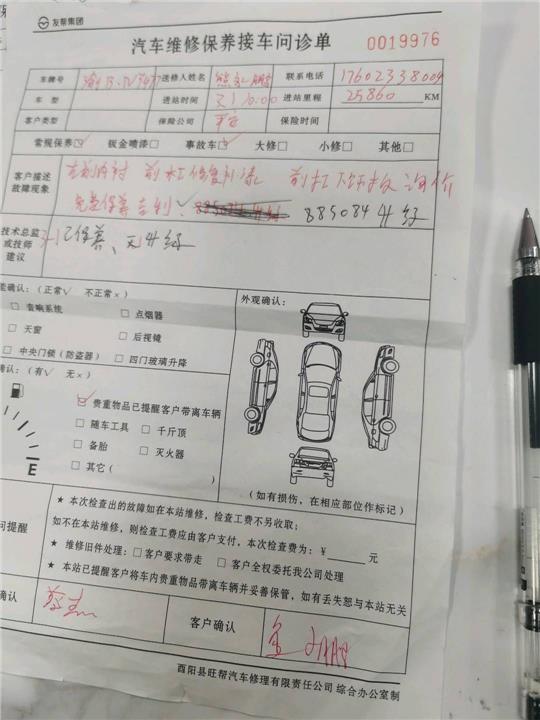 友帮集团
汽车维修保养接车问诊单 0019976
车牌号 送修人姓名 联系电话 17602338009
车型 进站时间 10:00 进站里程 25860 KM
客户类型 保险公司 保险时间
常规保养□ 钣金喷漆□ 事故车□ 大修□ 小修□ 其他□
客户描述 前杠 询价
故障现象 885084 升级
技术总监 已保养、无升级
或技师
建议
能确认：（正常√ 不正常×） 外观确认：
□ 音响系统 □ 点烟器
□ 天窗 □ 后视镜
□ 中央门锁（防盗器） □ 四门玻璃升降
确认：（有√ 无×）
□ 贵重物品已提醒客户带离车辆
□ 随车工具 □ 千斤顶
□ 备胎 □ 灭火器
□ 其它（ ）
E
（如有损伤，在相应部位作标记）
★ 本次检查出的故障如在本站维修，检查工费不另收取；
如不在本站维修，则检查工费应由客户支付，本次检查费为：¥ 元
问提醒 ★ 维修旧件处理：□ 客户要求带走 □ 客户全权委托我公司处理
★ 本站已提醒客户将车内贵重物品带离车辆并妥善保管，如有丢失恕与本站无关
确认 客户确认
酉阳县旺帮汽车修理有限责任公司 综合办公室制